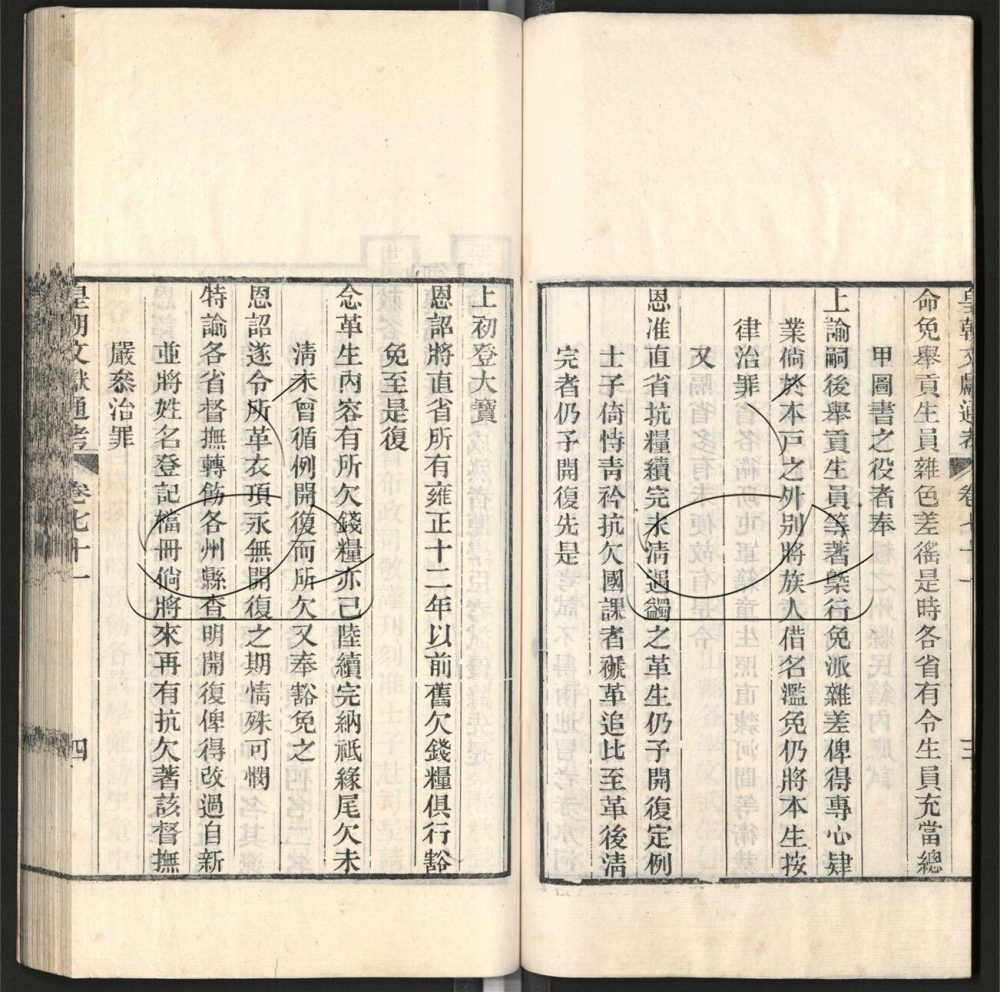 命免舉貢生員雜色差徭是時各省有令生員充當總
甲圖書之役者奉
上諭嗣後舉貢生員等著槩行免派雜差俾得專心肄
業倘於本戶之外别將族人借名濫免仍將本生按
律治罪
又
恩准直省抗糧續完未清遇蠲之革生仍予開復定例
士子倚恃青衿抗欠國課者褫革追比至革後清
完者仍予開復先是
皇朝文獻通考 卷七十一 四
上初登大寶
恩詔將直省所有雍正十二年以前舊欠錢糧俱行豁
免至是復
念革生內容有所欠錢糧亦已陸續完納祗緣尾欠未
清未曾循例開復而所欠又奉豁免之
恩詔遂令所革衣頂永無開復之期情殊可憫
特諭各省督撫轉飭各州縣查明開復俾得改過自新
並將姓名登記檔冊倘將來再有抗欠著該督撫
嚴叅治罪